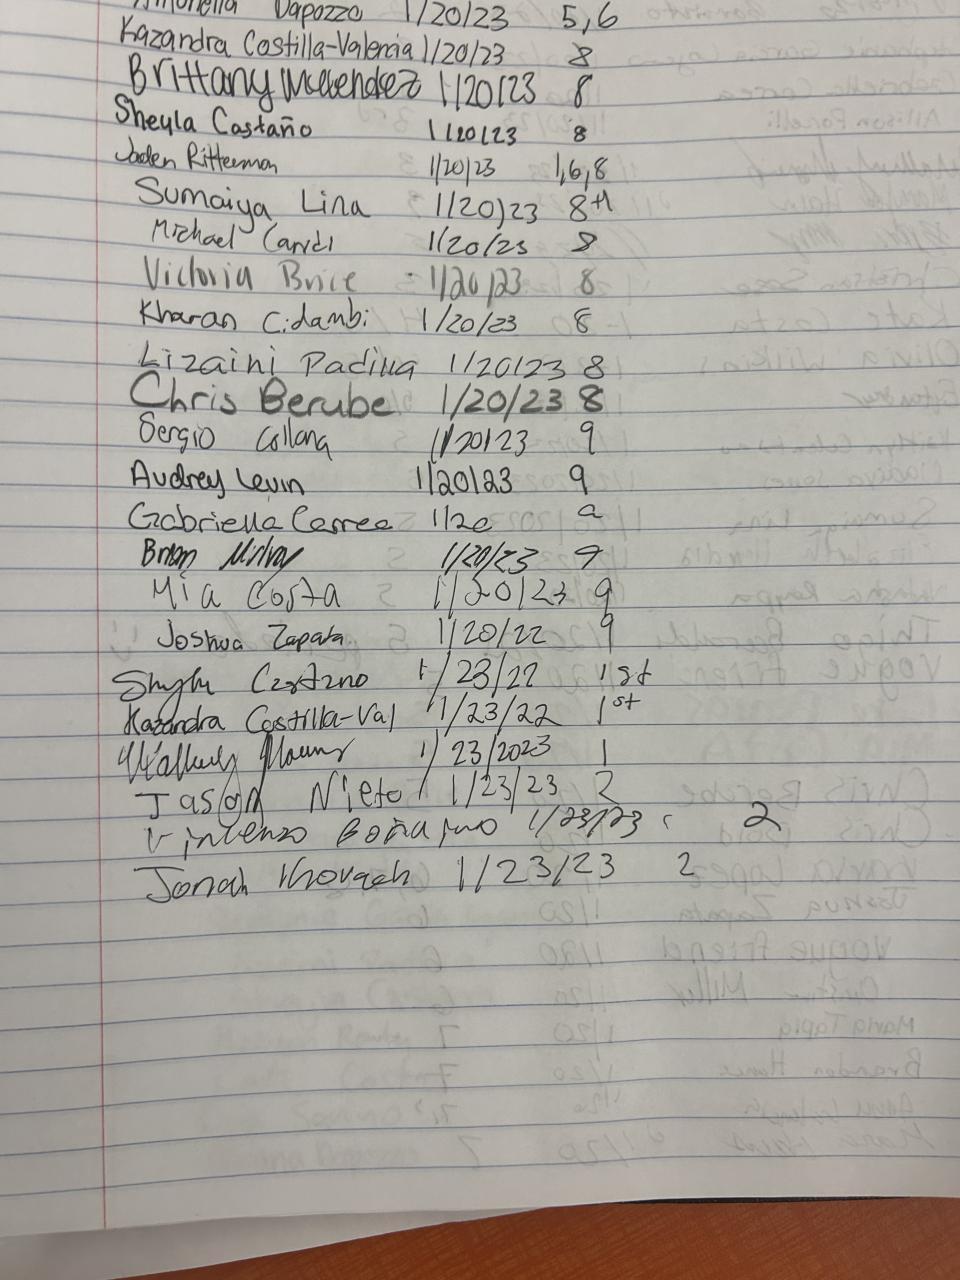 Dapozzo 1/20/23 5,6
Kazandra Costilla-Valencia 1/20/23 8
Brittany Melendez 1/20/23 8
Sheyla Castaño 1/20/23 8
Jaden Ritterman 1/20/23 1,6,8
Sumaiya Lina 1/20/23 8th
Michael Cardi 1/20/23 8
Victoria Brice 1/20/23 8
Kharan Cidambi 1/20/23 8
Lizaini Padilla 1/20/23 8
Chris Berube 1/20/23 8
Sergio Collana 1/20/23 9
Audrey Levin 1/20/23 9
Gabriella Correa 1/20 9
Brian 1/20/23 9
Mia Costa 1/20/23 9
Joshua Zapata 1/20/22 9
1/23/22 1st
Kazandra Costilla-Val 1/23/22 1st
1/23/2023 1
Jason Nieto 1/23/23 2
Vincenzo 1/23/23 2
Jonah 1/23/23 2